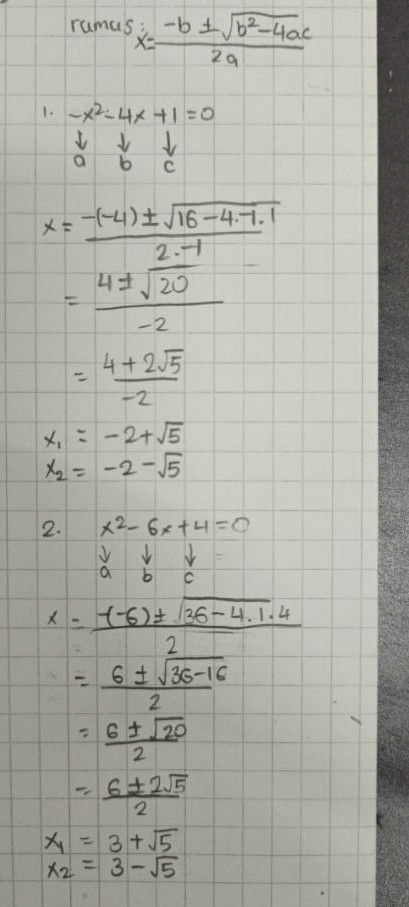 rumus: x = (-b ± √(b² - 4ac)) / 2a
1. -x² - 4x + 1 = 0
↓ ↓ ↓
a b c
x = (-(-4) ± √(16 - 4.-1.1)) / 2.-1
= (4 ± √20) / -2
= (4 + 2√5) / -2
x₁ = -2 + √5
x₂ = -2 - √5
2. x² - 6x + 4 = 0
↓ ↓ ↓
a b c
x = (-(-6) ± √(36 - 4.1.4)) / 2
= (6 ± √(36 - 16)) / 2
= (6 ± √20) / 2
= (6 ± 2√5) / 2
x₁ = 3 + √5
x₂ = 3 - √5